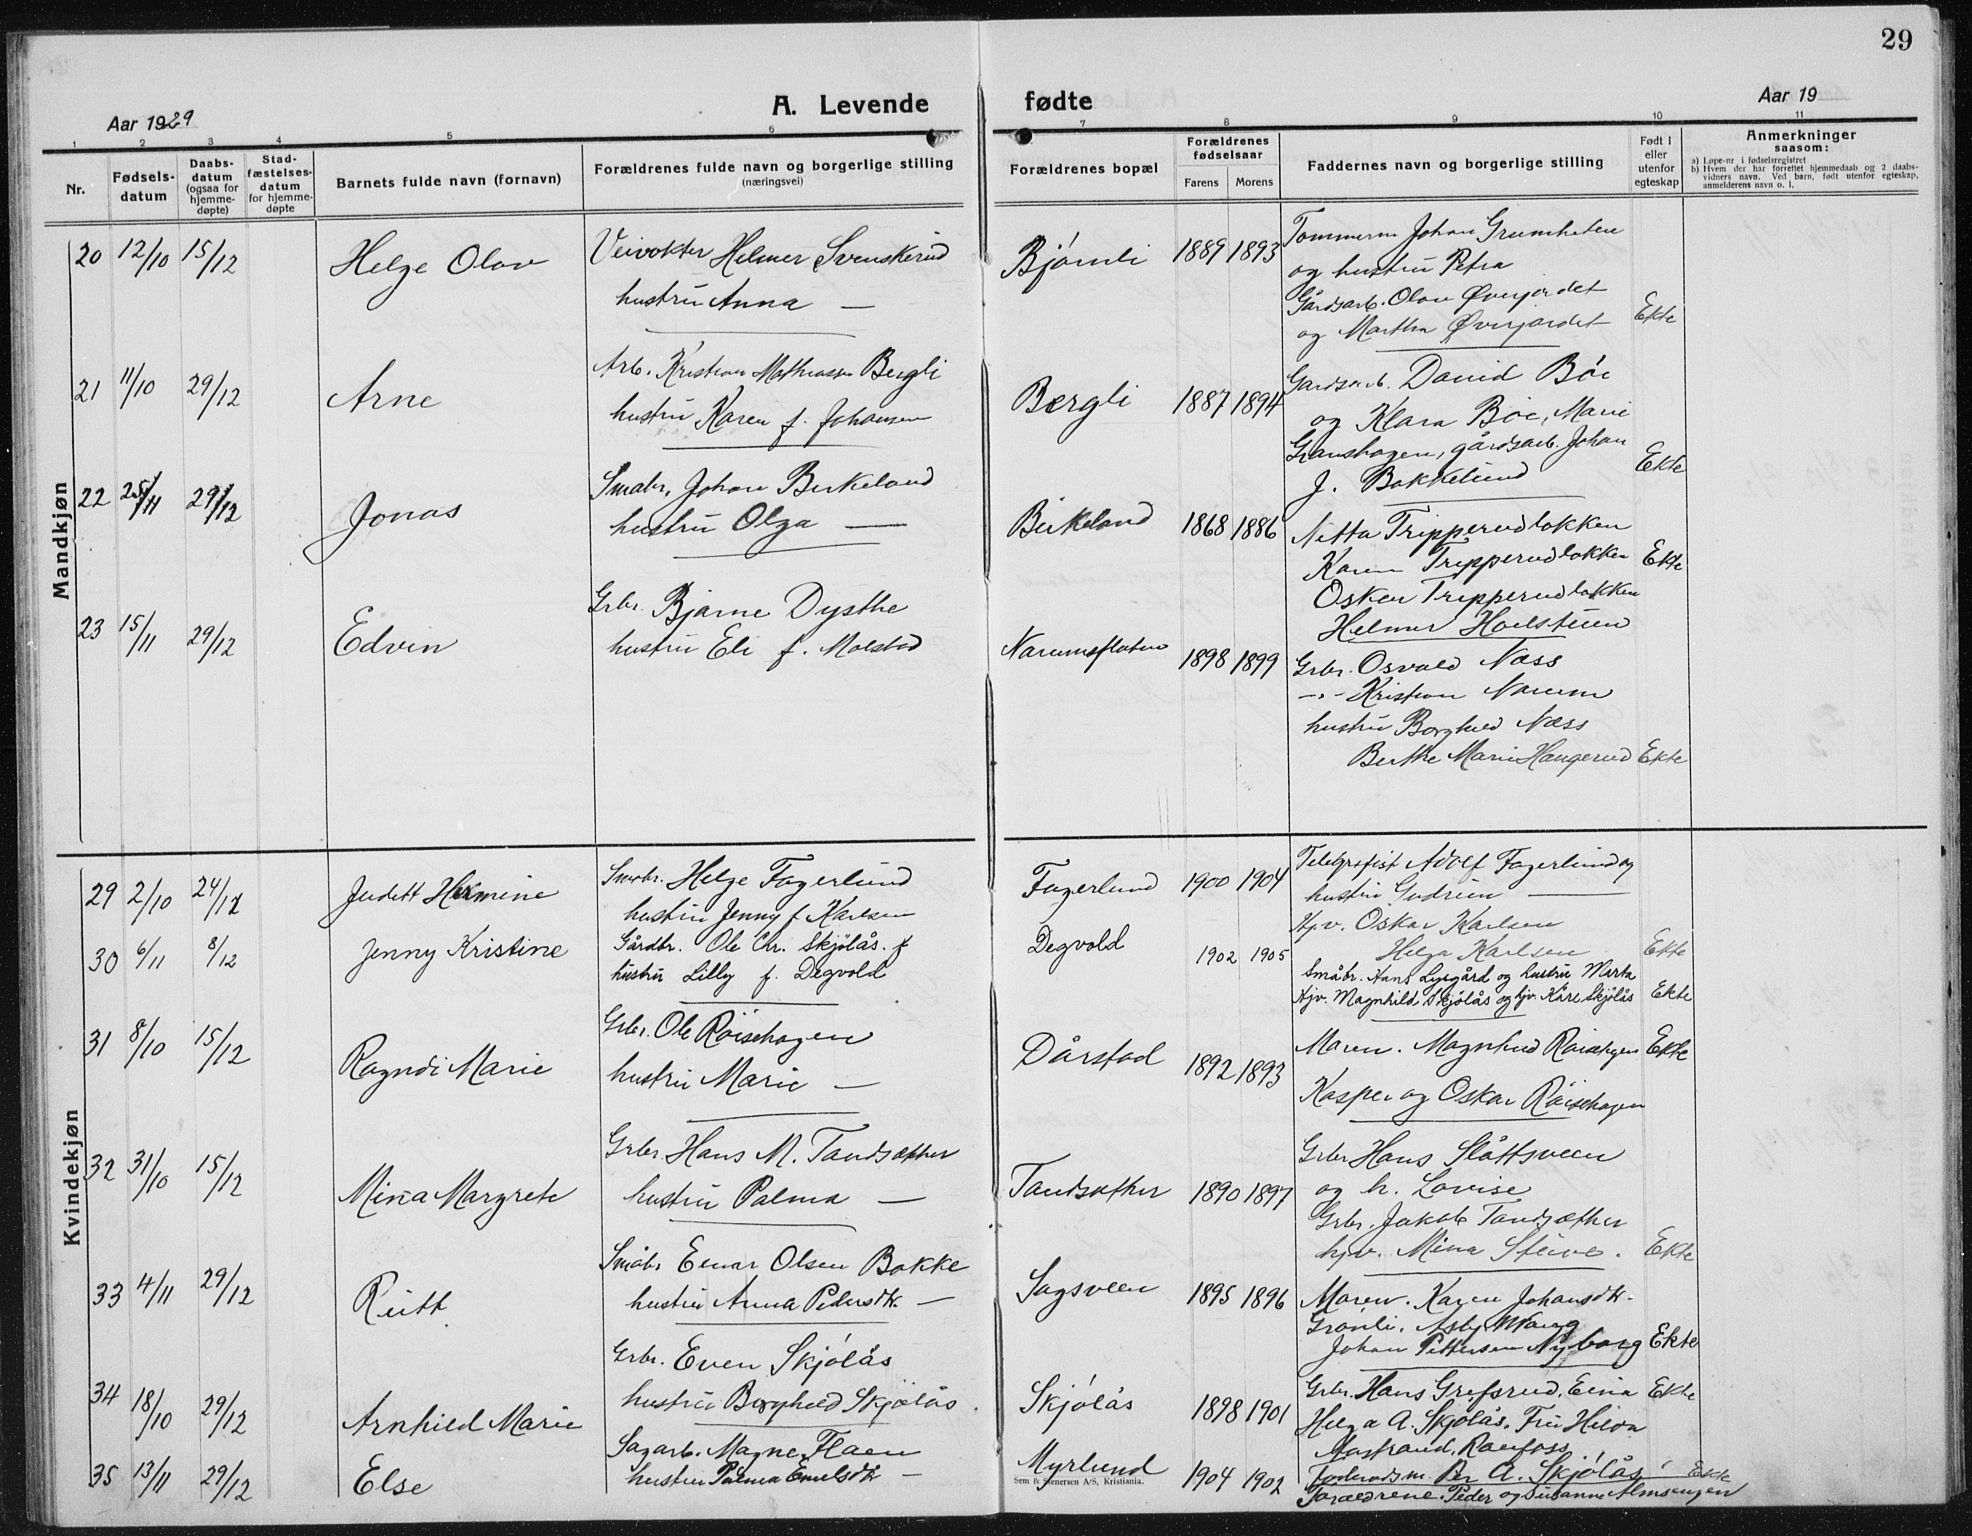 29
Aar 1929
A. Levende
fødte
Aar 19
1 2 3 4 5 6 7 8 9 10 11
Nr.
Fødsels-
datum
Daabs-
datum
(ogsaa for
hjemme-
døpte)
Stad-
fæstelses-
datum
for hjemme-
døpte
Barnets fulde navn (fornavn)
Forældrenes fulde navn og borgerlige stilling
(næringsvei)
Forældrenes bopæl
Forældrenes
fødselsaar
Farens Morens
Faddernes navn og borgerlige stilling
Født i
eller
utenfor
egteskap
Anmerkninger
saasom:
a) Løpe-nr i fødselsregistret
b) Hvem der har forrettet hjemmedaab og 2 daabs-
vidners navn. Ved barn, født utenfor egteskap,
anmelderens navn o. l.
Mandkjøn
20 12/10 15/12 Helge Olav
Veivokter Helmer Svenskerud
hustru Anna —
Bjørnli 1889 1893
Tommerm Johan Grumheten
og hustru Petra
Gårdsarb. Olav Øverjordet
og Martha Øverjordet Ekte
21 11/10 29/12 Arne
Arb. Kristian Mathiassen Bergli
hustru Karen f. Johansen
Bergli 1887 1894
Gardsarb. David Böe
og Klara Böe, Marie
Granshagen, gårdsarb. Johan
J. Bakkelund Ekte
22 25/11 29/12 Jonas
Småbr. Johan Birkeland
hustru Olga —
Birkeland 1868 1886
Nitta Tripperudlökken
Karen Tripperudlokken Ekte
Oskar Tripperudlokken
Helmer Hoelsteen
23 15/11 29/12 Edvin
Grbr. Bjarne Dysthe
hustru Eli f. Molstad
Narumsflaten 1898 1899
Grbr. Osvald Næss
—„— Kristian Narum
hustru Borghild Næss
Berthe Marie Haugerud Ekte
Kvindekjøn
29 2/10 24/12 Judett Hermine
Småbr. Helge Fagerlund
hustru Jenny f. Karlsen
Fagerlund 1900 1904
Telegrafist Adolf Fagerlund og
hustru Gudrun —
Hjv. Oskar Karlsen
Helga Karlsen Ekte
30 6/11 8/12 Jenny Kristine
Gårdbr. Ole Chr. Skjölås. f
hustru Lilly f. Degvold
Degvold 1902 1905
Småbr. Hans Lysgård og hustru Marta
Hjv. Magnhild Skjölås og hjv. Kåre Skjölås Ekte
31 8/10 15/12 Ragndi Marie
Grbr. Ole Röisehagen
hustru Marie —
Dårstad 1892 1893
Moren. Magnhild Röisehagen Ekte
Kasper og Oskar Röisehagen
32 31/10 15/12 Mina Margrete
Grbr. Hans M. Tandsæther
hustru Palma —
Tandsæther 1890 1897
Grbr Hans Slåttsveen
og h. Lovise
Grbr. Jakob Tandsæther
hjv. Mina Steive. Ekte
33 4/11 29/12 Rutt
Småbr Einar Olsen Bakke
hustru Anna Pedersdtr. —
Sagsveen 1895 1896
Moren. Karen Johansdtr.
Grønli. Asby Haug
Johan Pettersen Nyborg Ekte
34 18/10 29/12 Arnhild Marie
Grbr. Even Skjölås
hustru Borghild Skjölås.
Skjölås 1898 1901
Grbr. Hans Grefsrud. Eina Ekte
Helga A. Skjölås. Fru Hilda
Aastrand, Raufoss
Föderådsm. Per A. Skjölås
35 13/11 29/12 Else
Sagarb. Magne Flaen
hustru Palma Emilsdtr —
Myrlund 1904 1902 Ekte
Foreldrene. Peder og Susanne Almsengen
Sem & Stenersen A/S, Kristiania.